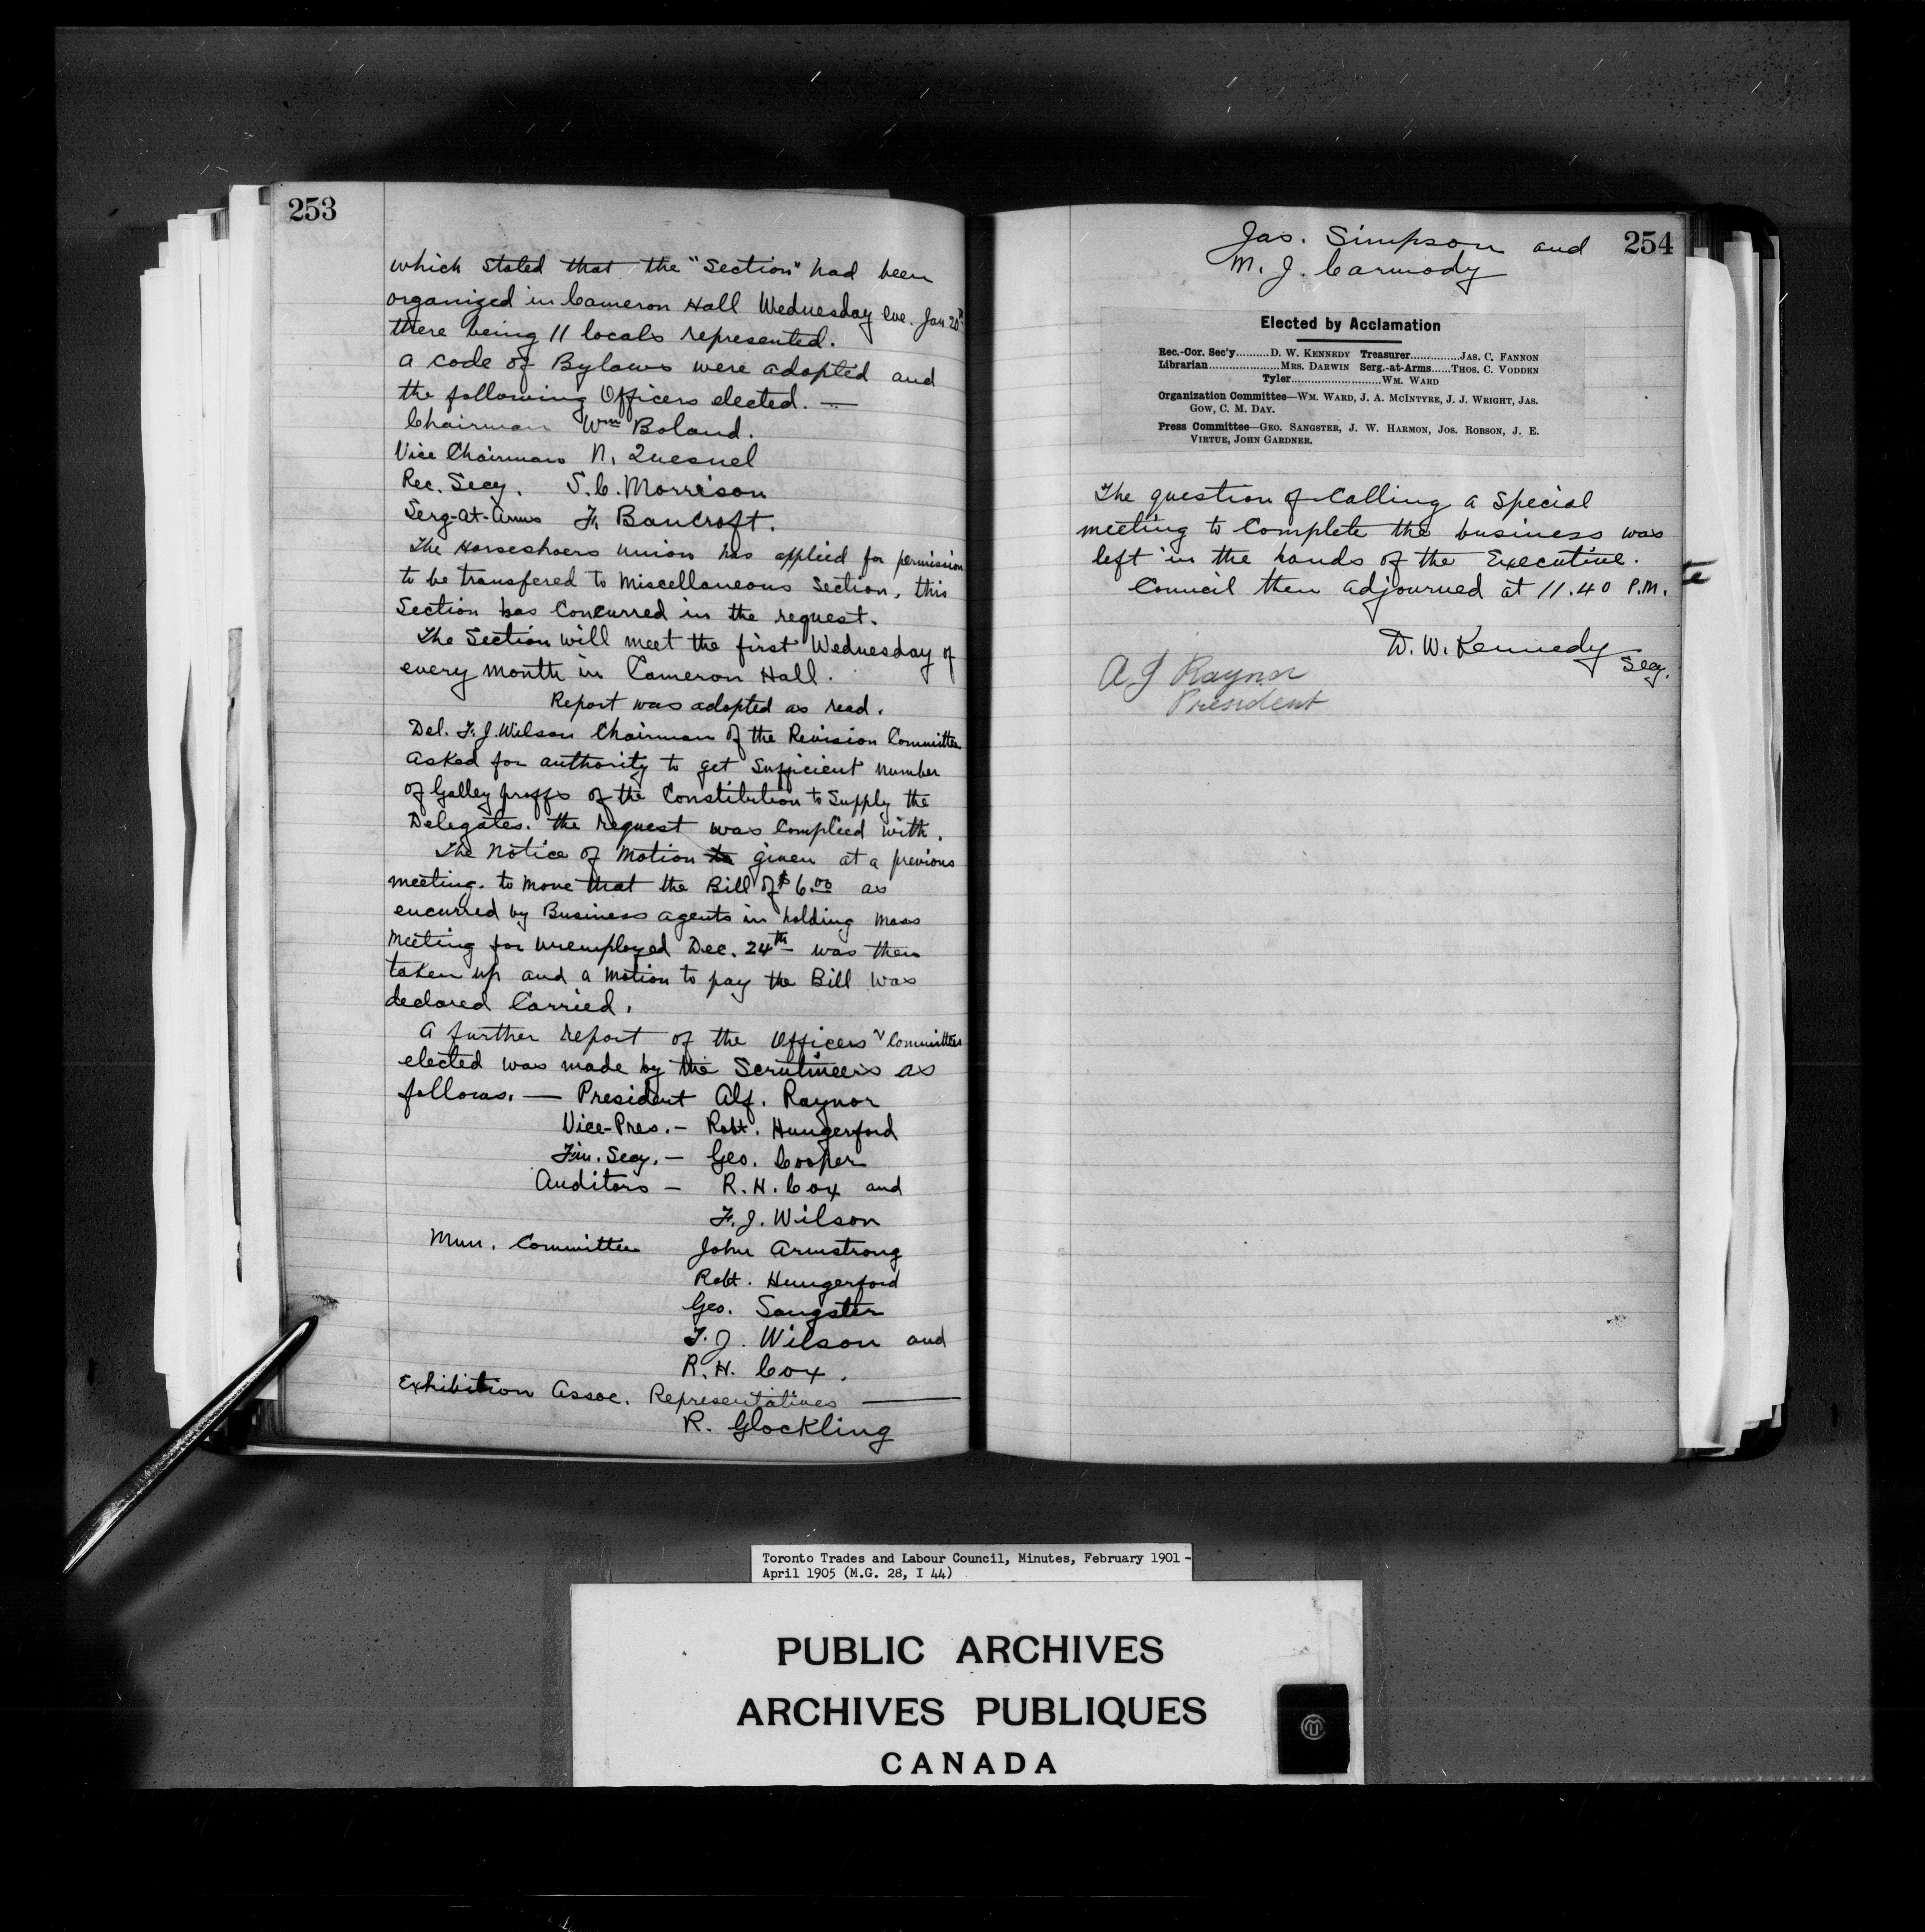 253
which stated that the "Section" had been
organized in Cameron Hall Wednesday eve. Jan 20th
there being 11 locals represented.
A code of Bylaws were adopted and
the following Officers elected. —
Chairman Wm Boland.
Vice Chairman N. Quesnel
Rec. Secy. S. C. Morrison
Serg-at-Arms F. Bancroft.
The Horseshoers Union has applied for permission
to be transfered to Miscellaneous Section, this
Section has Concurred in the request.
The Section will meet the first Wednesday of
every month in Cameron Hall.
Report was adopted as read.
Del. F. J. Wilson Chairman of the Revision Committee
asked for authority to get Sufficient number
of Galley proffs of the Constitution to Supply the
Delegates. the request was Complied with.
The Notice of Motion to given at a previous
meeting. to move that the Bill of $6.00 as
encurred by Business agents in holding mass
Meeting for unemployed Dec. 24th was then
taken up and a Motion to pay the Bill was
declared Carried.
A further report of the Officers & Committees
elected was made by the Scrutineers as
follows. — President Alf. Raynor
Vice-Pres. — Robt. Hungerford
Fin. Secy. — Geo. Cooper
Auditors — R. H. Cox and
F. J. Wilson
Mun. Committee John Armstrong
Robt. Hungerford
Geo. Sangster
F. J. Wilson and
R. H. Cox.
Exhibition Assoc. Representatives —
R. Glockling
254
Jas. Simpson and
M. J. Carmody
Elected by Acclamation
Rec.-Cor. Sec'y.........D. W. KENNEDY Treasurer.............JAS. C. FANNON
Librarian....................MRS. DARWIN Serg.-at-Arms......THOS. C. VODDEN
Tyler..........................WM. WARD
Organization Committee—WM. WARD, J. A. MCINTYRE, J. J. WRIGHT, JAS.
GOW, C. M. DAY.
Press Committee—GEO. SANGSTER, J. W. HARMON, JOS. ROBSON, J. E.
VIRTUE, JOHN GARDNER.
The question of Calling a Special
meeting to Complete the business was
left in the hands of the Executive.
Council then adjourned at 11.40 P.M.
D. W. Kennedy
Secy.
A J Raynor
President
Toronto Trades and Labour Council, Minutes, February 1901 -
April 1905 (M.G. 28, I 44)
PUBLIC ARCHIVES
ARCHIVES PUBLIQUES
CANADA